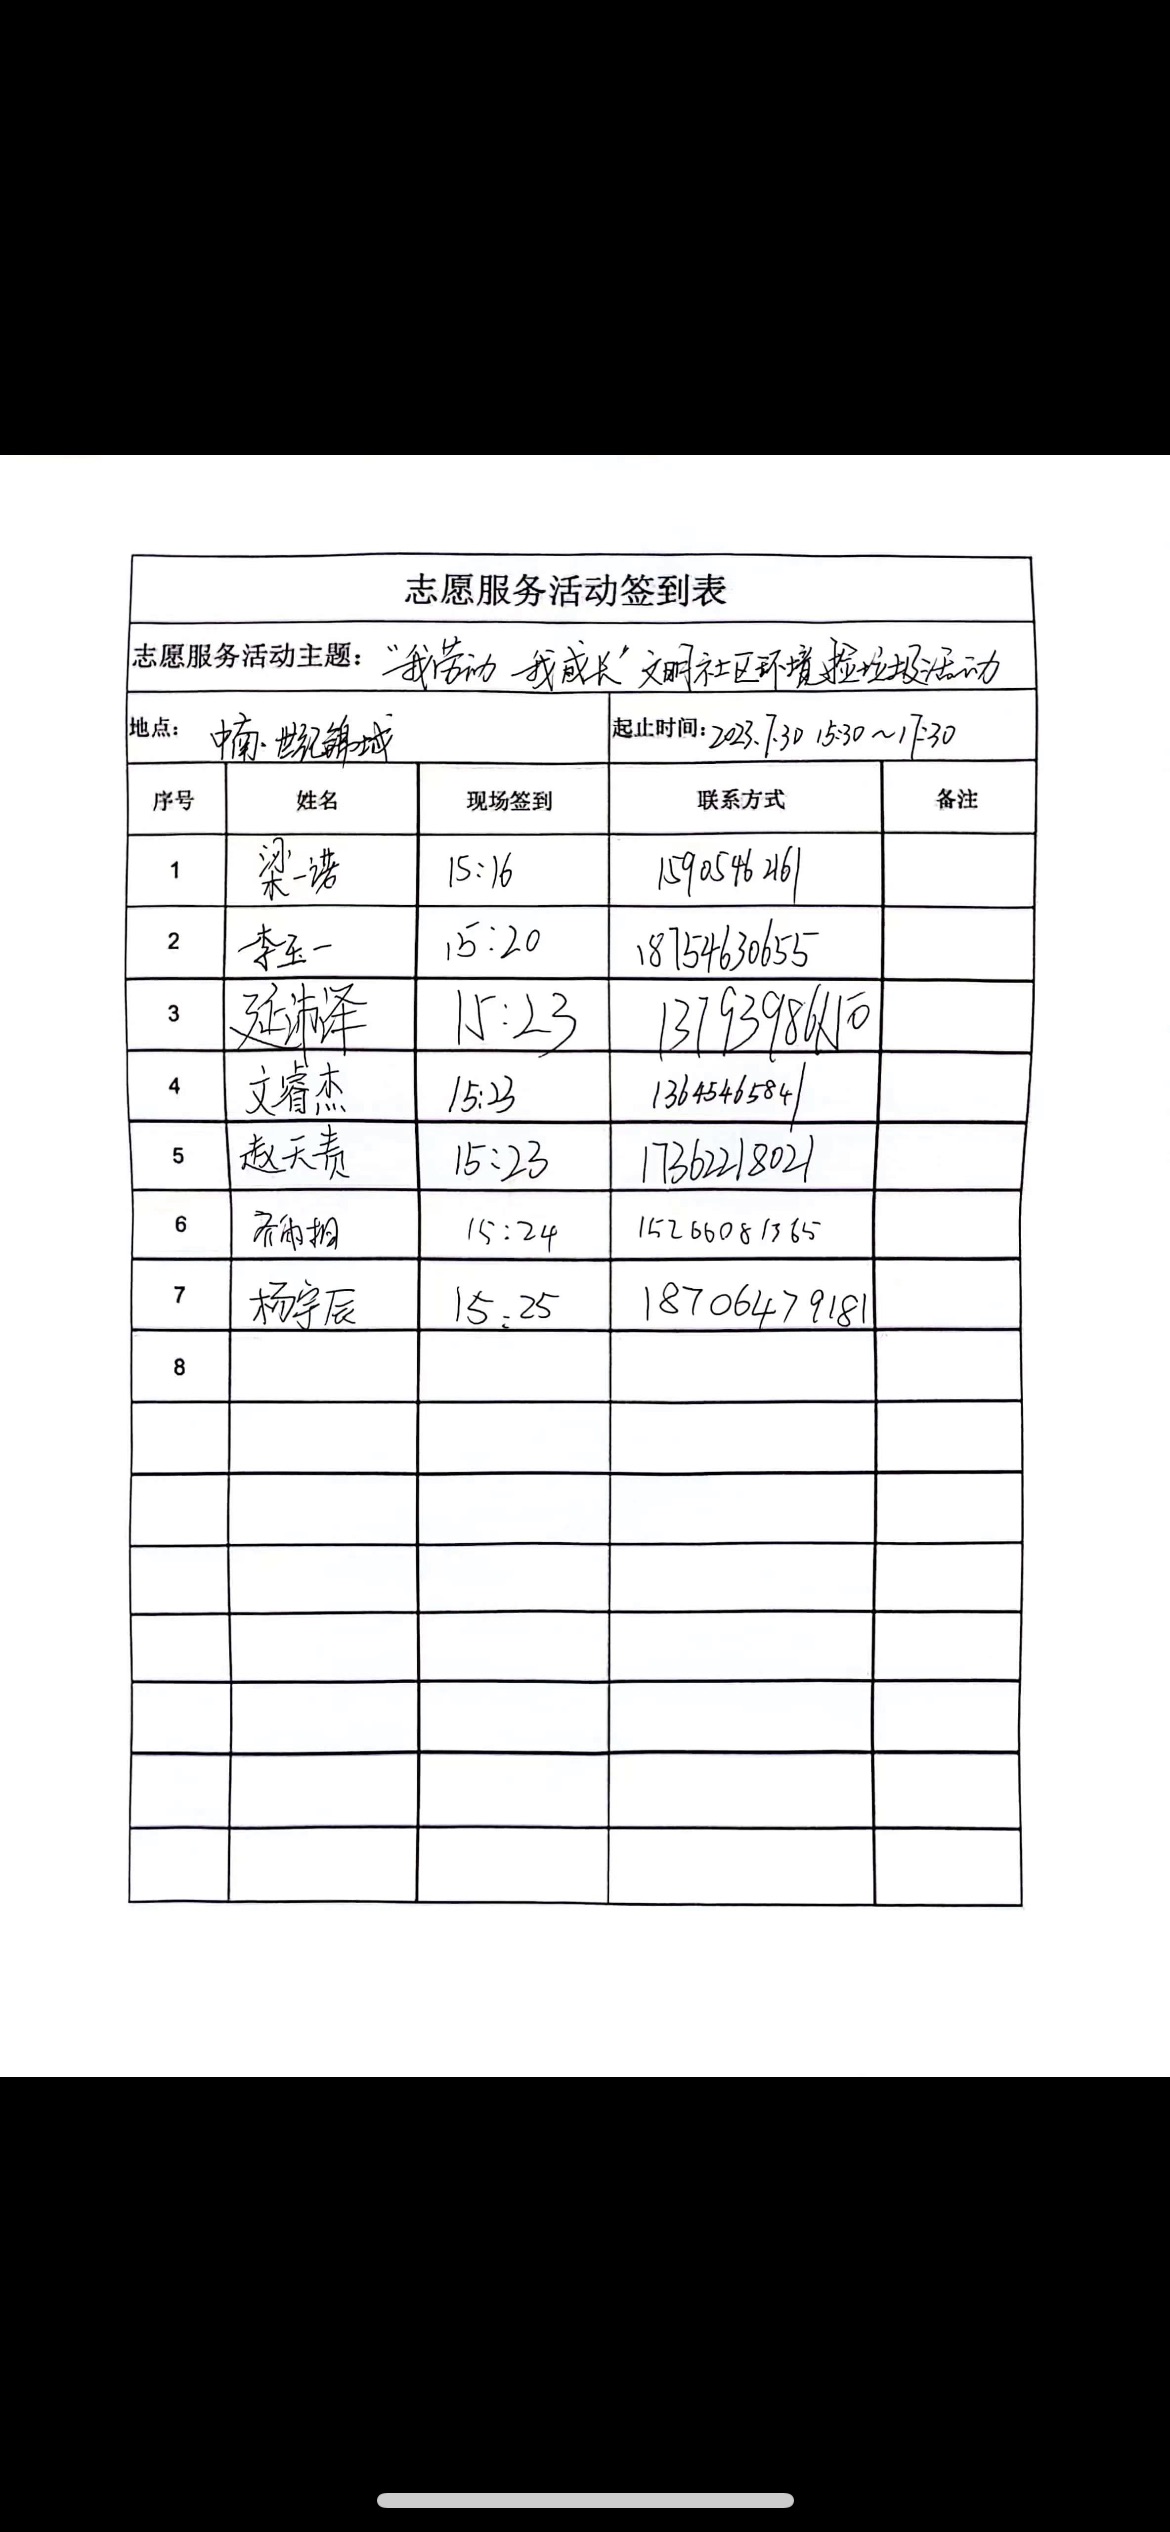 志愿服务活动签到表
志愿服务活动主题：“我劳动 我成长”文明社区环境捡垃圾活动
地点： 中南·世纪锦城 起止时间：2023.7.30 15:30～17:30
序号 姓名 现场签到 联系方式 备注
1 梁一诺 15:16 15905462161
2 李玉一 15:20 18754630655
3 延沛泽 15:23
4 文睿杰 15:23 13645465841
5 赵天责 15:23 17362218021
6 15:24 15266081365
7 杨宇辰 15:25 18706479181
8